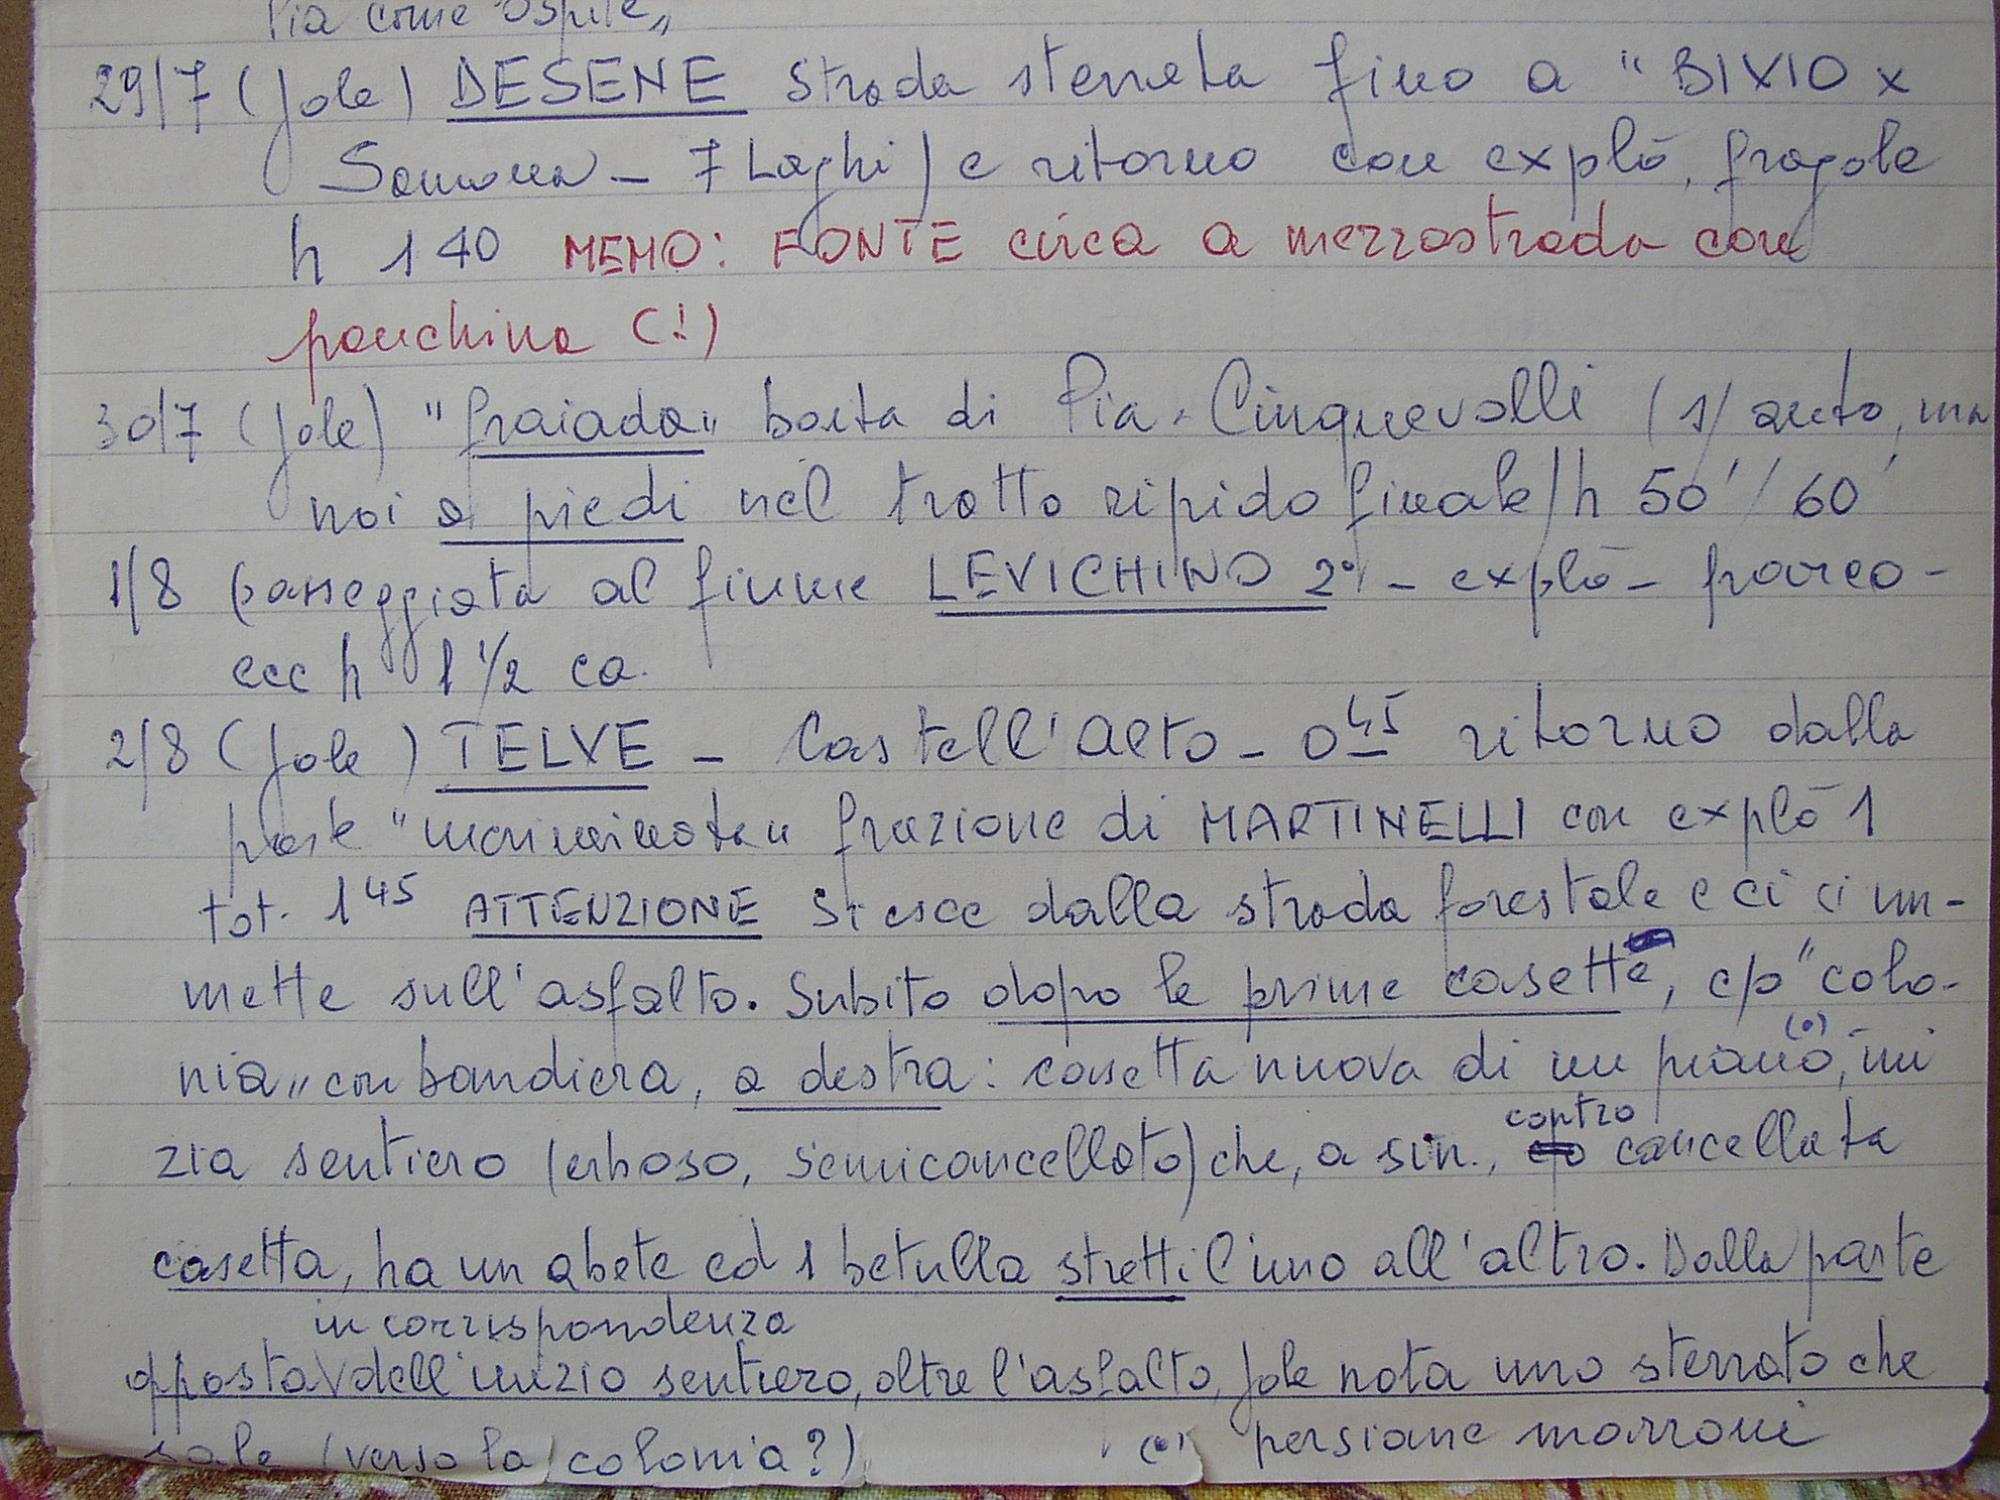 Pia come ospite"
29/7 (Jole) DESENE strada sterrata fino a "BIVIO x
Samona - 7 Laghi) e ritorno con explò, fragole
h 1 40 MEMO: FONTE circa a mezzastrada con
panchina (!)
30/7 (Jole) "fraiada" baita di Pia - Cinquevalli (1/ auto, ma
noi a piedi nel tratto ripido finale/h 50'/60'
1/8 passeggiata al fiume LEVICHINO 2° - explò - parco -
ecc h 1 1/2 ca.
2/8 (Jole) TELVE - Castell'Alto - 0 45 ritorno dalla
parte frazione di MARTINELLI con explò 1
tot. 1 45 ATTENZIONE si esce dalla strada forestale e ci si im-
mette sull'asfalto. Subito dopo le prime casette, c/o "colo-
nia" con bandiera, a destra: casetta nuova di un piano (°), ini
zia sentiero (erboso, semicancellato) che, a sin., contro cancellata
casetta, ha un abete ed 1 betulla stretti l'uno all'altro. Dalla parte
in corrispondenza
opposta dell'inizio sentiero, oltre l'asfalto, Jole nota uno sterrato che
sale (verso la colonia?) (°) persiane marroni